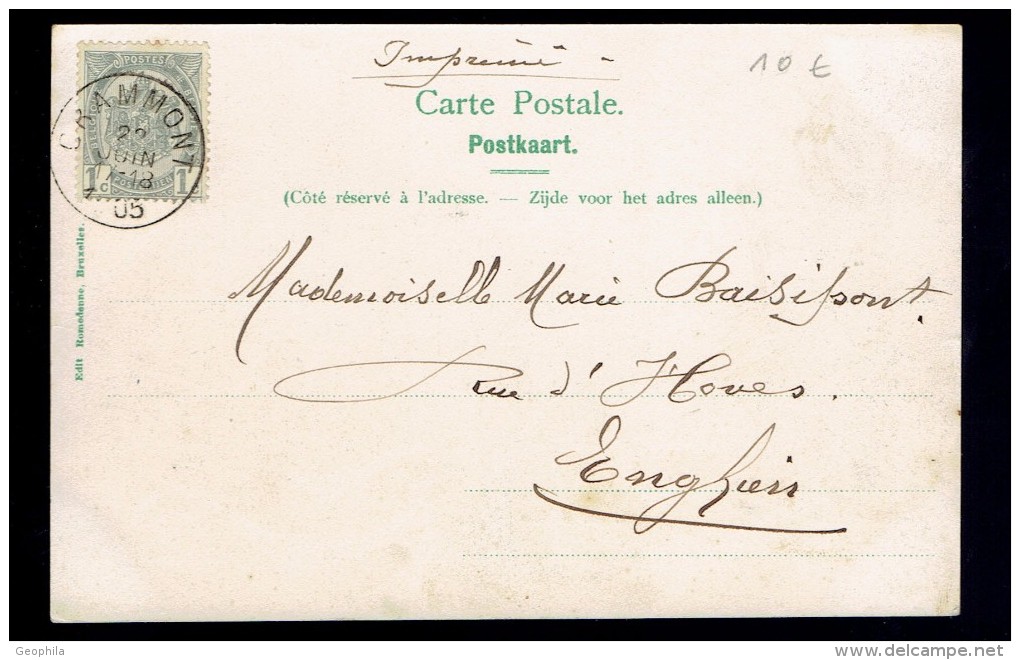 Imprimé -
10 €
Carte Postale.
Postkaart.
(Côté réservé à l'adresse. — Zijde voor het adres alleen.)
POSTES
1 c 1 c
GRAMMONT
22
JUIN
17-18
05
Edit Romedenne, Bruxelles.
Mademoiselle Marie Baisipont.
rue d'Hoves.
Enghien
Geophila
www.delcampe.net